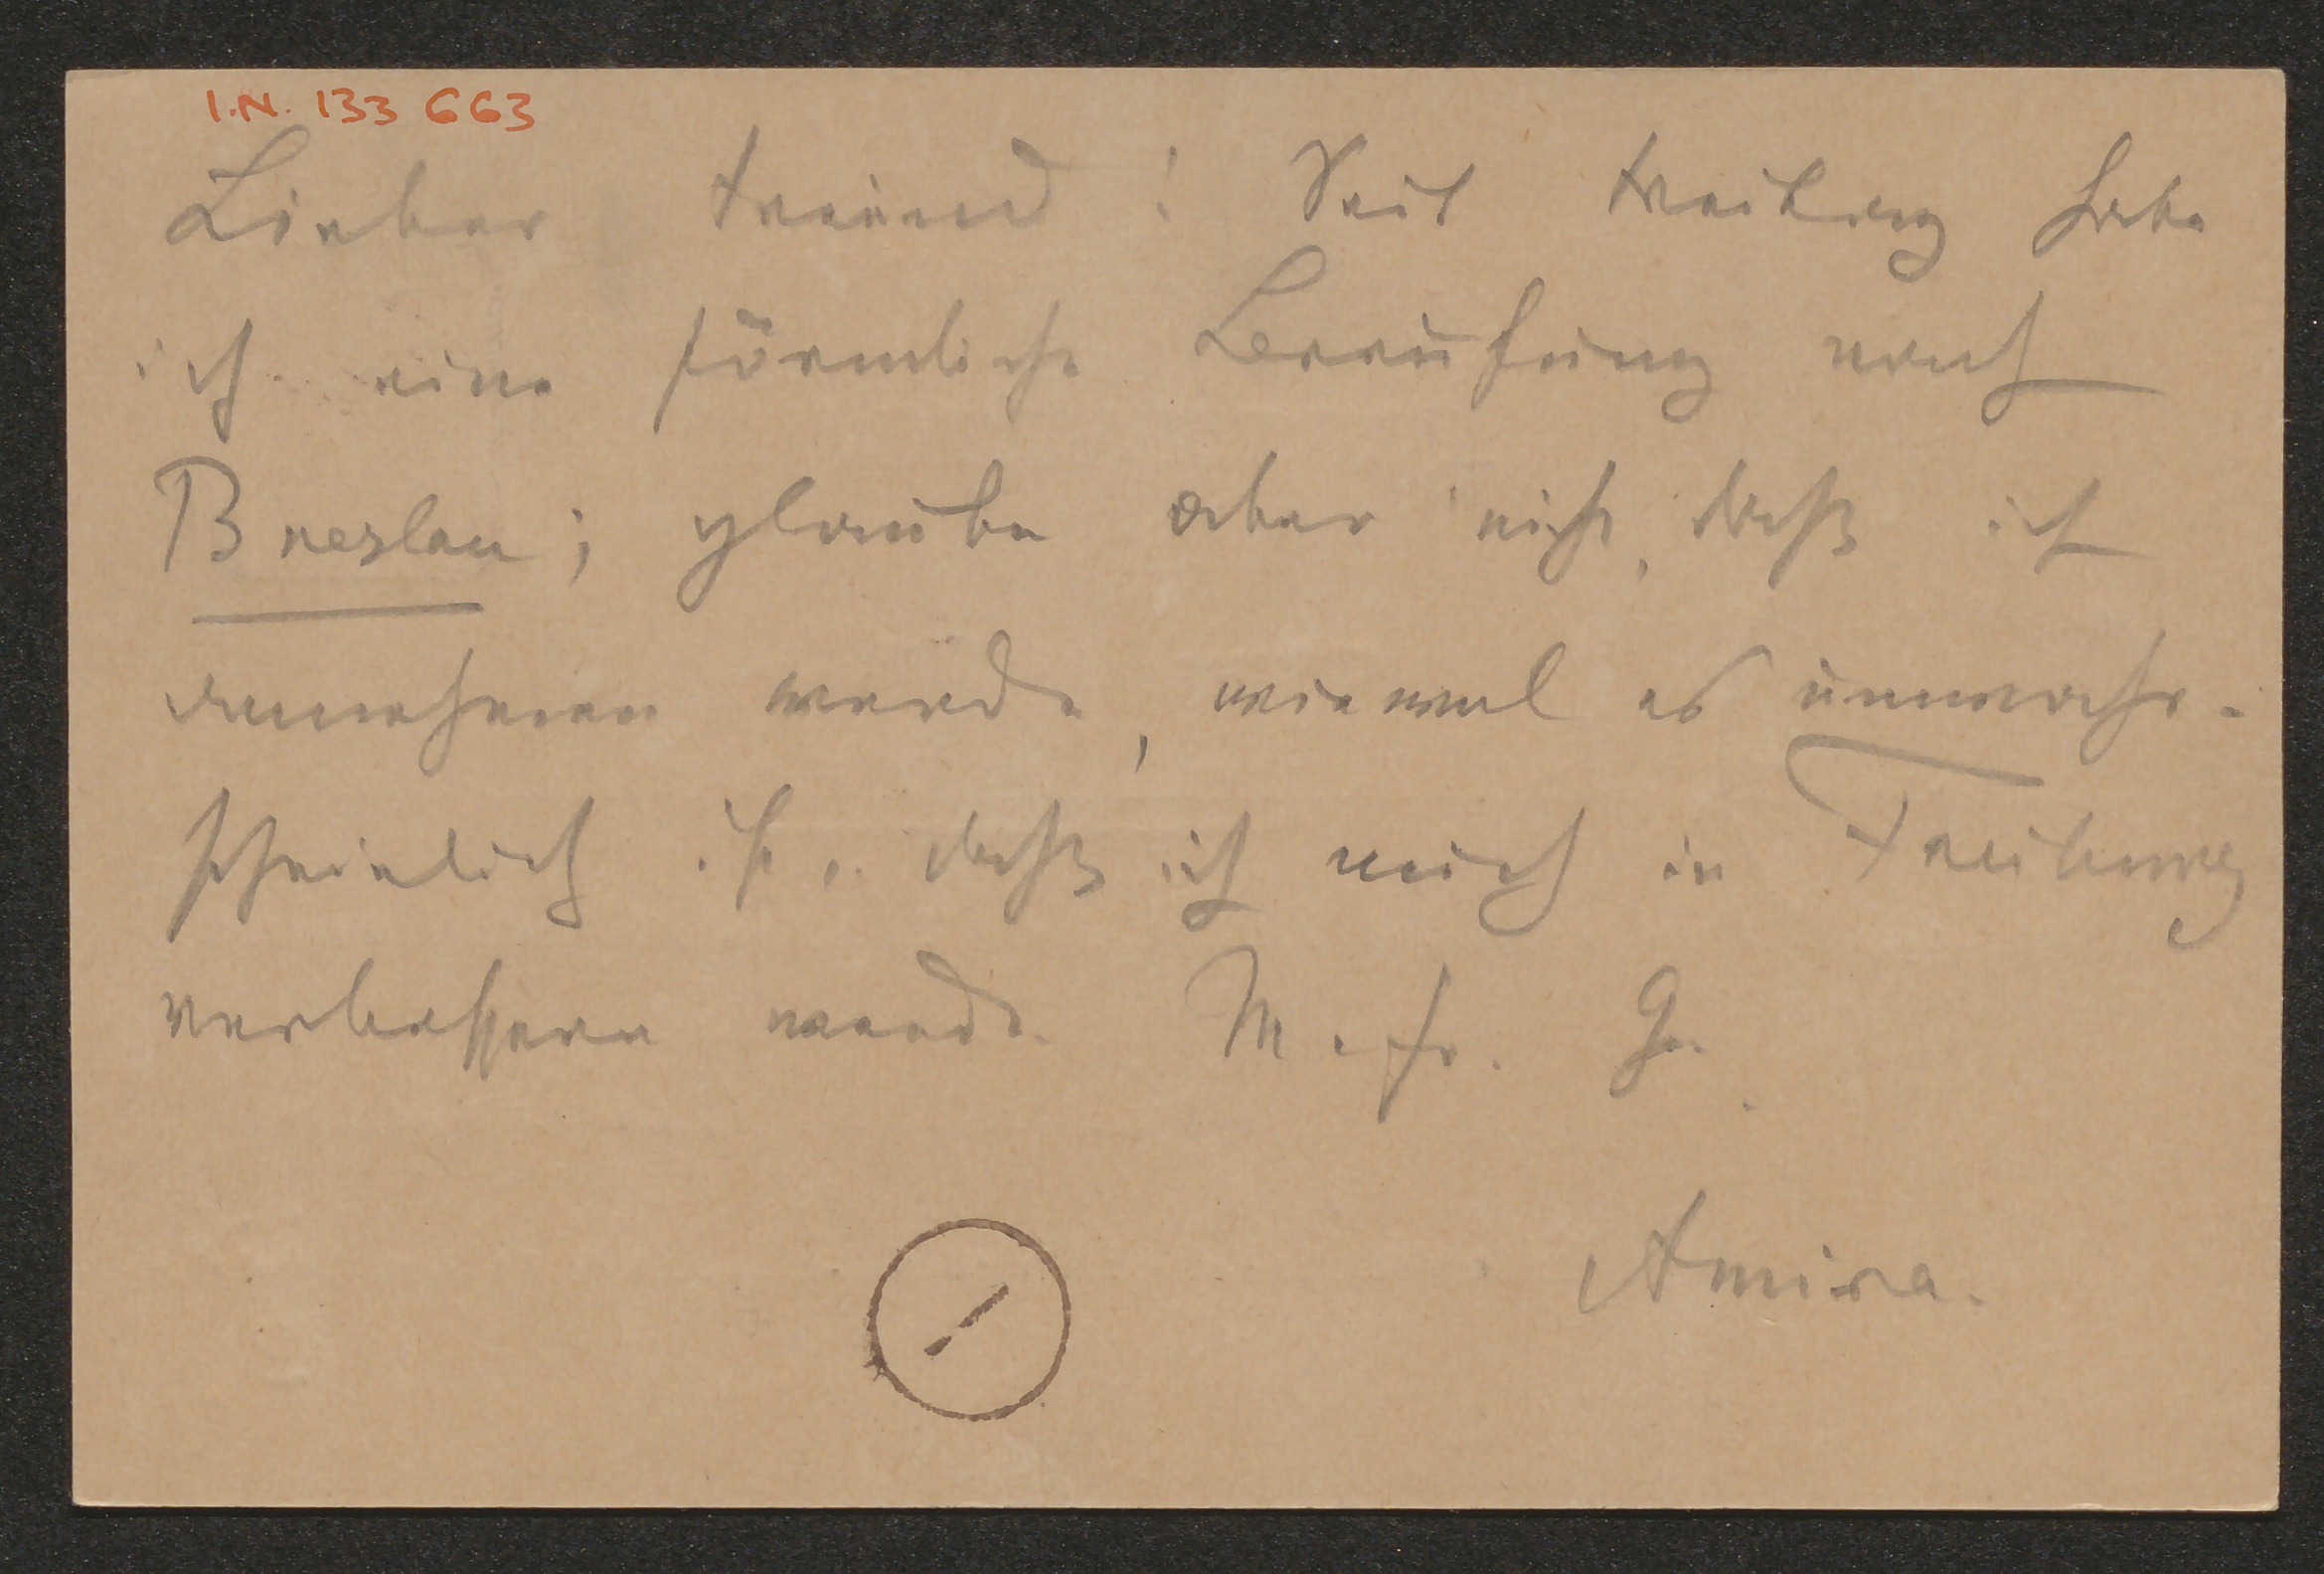 I.N. 133 663
Lieber Freund! Seit Freitag habe
ich eine förmliche Berufung nach
Breslau; glaube aber nicht, daß ich
annehmen werde, wiewol es unwahr-
scheinlich ist, daß ich mich in Freiburg
verbessern werde. M. fr. Gr.
Amira.